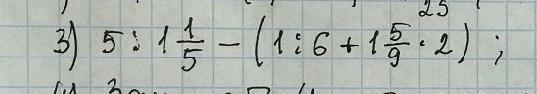 25
3) 5 : 1 1/5 − (1 : 6 + 1 5/9 · 2) ;